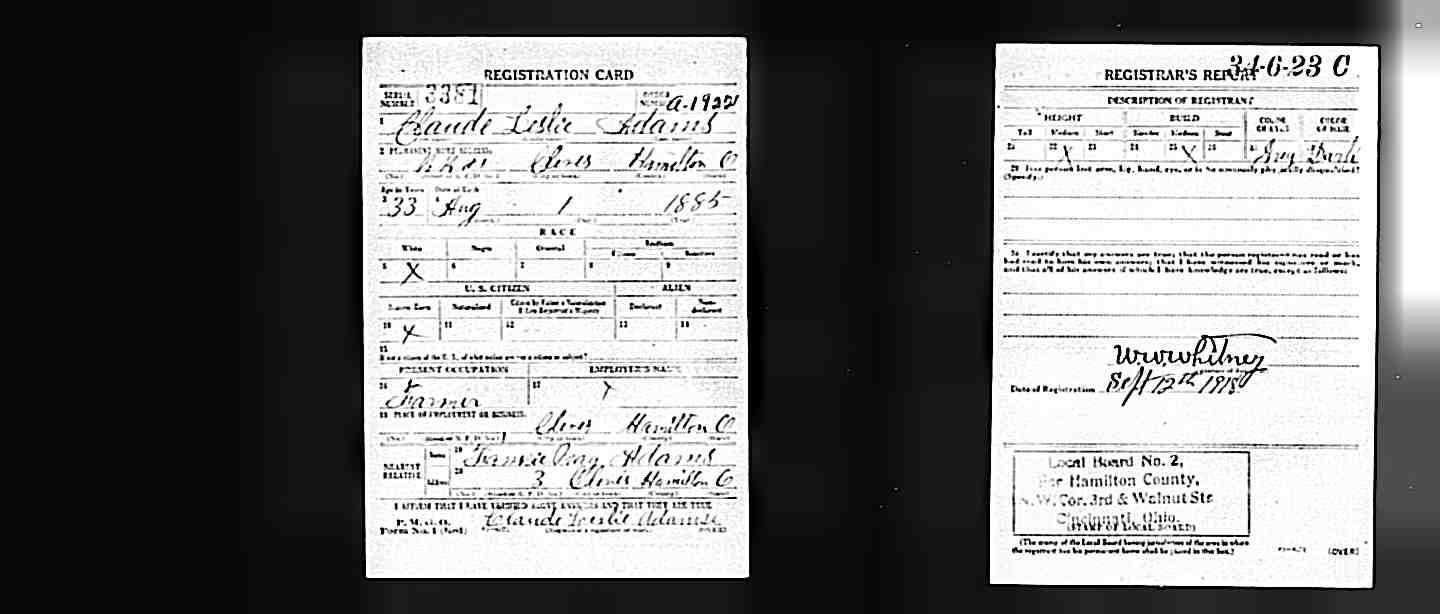 REGISTRATION CARD
SERIAL NUMBER 3381 ORDER NUMBER A-1922
1 Claude Leslie Adams
2 PERMANENT HOME ADDRESS:
Cleves Hamilton O
(No.) (Street or R. F. D. No.) (City or town) (County) (State)
Age in Years Date of Birth
3 33 4 Aug 1 1885
(Month) (Day) (Year)
RACE
White Negro Oriental Indian
Citizen Noncitizen
5 X 6 7 8 9
U. S. CITIZEN ALIEN
Native Born Naturalized Citizen by Father's Naturalization Before Registrant's Majority Declarant Non-declarant
10 X 11 12 13 14
15
If not a citizen of the U. S., of what nation are you a citizen or subject?
PRESENT OCCUPATION EMPLOYER'S NAME
16 Farmer 17 X
18 PLACE OF EMPLOYMENT OR BUSINESS:
Cleves Hamilton O
(No.) (Street or R. F. D. No.) (City or town) (County) (State)
NEAREST RELATIVE Name 19 Adams
Address 20 3 Cleves Hamilton O
(No.) (Street or R. F. D. No.) (City or town) (County) (State)
I AFFIRM THAT I HAVE VERIFIED ABOVE ANSWERS AND THAT THEY ARE TRUE
P. M. G. O.
Form No. 1 (Red) Claude Leslie Adams
(Registrant's signature or mark) (OVER)
REGISTRAR'S REPORT 34-6-23 C
DESCRIPTION OF REGISTRANT
HEIGHT BUILD COLOR OF EYES COLOR OF HAIR
Tall Medium Short Slender Medium Stout
21 22 X 23 24 25 X 26 27 Grey 28 Dark
29 Has person lost arm, leg, hand, eye, or is he obviously physically disqualified?
(Specify.)
30 I certify that my answers are true; that the person registered has read or has
had read to him his own answers; that I have witnessed his signature or mark,
and that all of his answers of which I have knowledge are true, except as follows:
W W Whitney
Date of Registration Sept 12th 1918
Local Board No. 2,
For Hamilton County,
N.W. Cor. 3rd & Walnut Sts
Cincinnati, Ohio.
(STAMP OF LOCAL BOARD)
(The stamp of the Local Board having jurisdiction of the area in which
the registrant has his permanent home shall be placed in this box.)
(OVER)